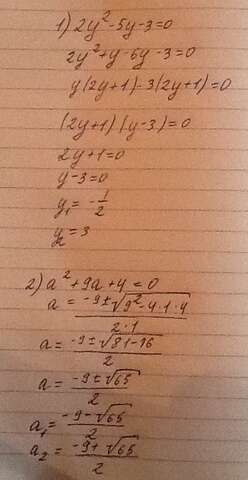 1) 2y²-5y-3=0
2y²+y-6y-3=0
y(2y+1)-3(2y+1)=0
(2y+1)(y-3)=0
2y+1=0
y-3=0
y₁=-1/2
y₂=3
2) a²+9a+4=0
a=(-9±√(9²-4·1·4))/(2·1)
a=(-9±√(81-16))/2
a=(-9±√65)/2
a₁=(-9-√65)/2
a₂=(-9+√65)/2